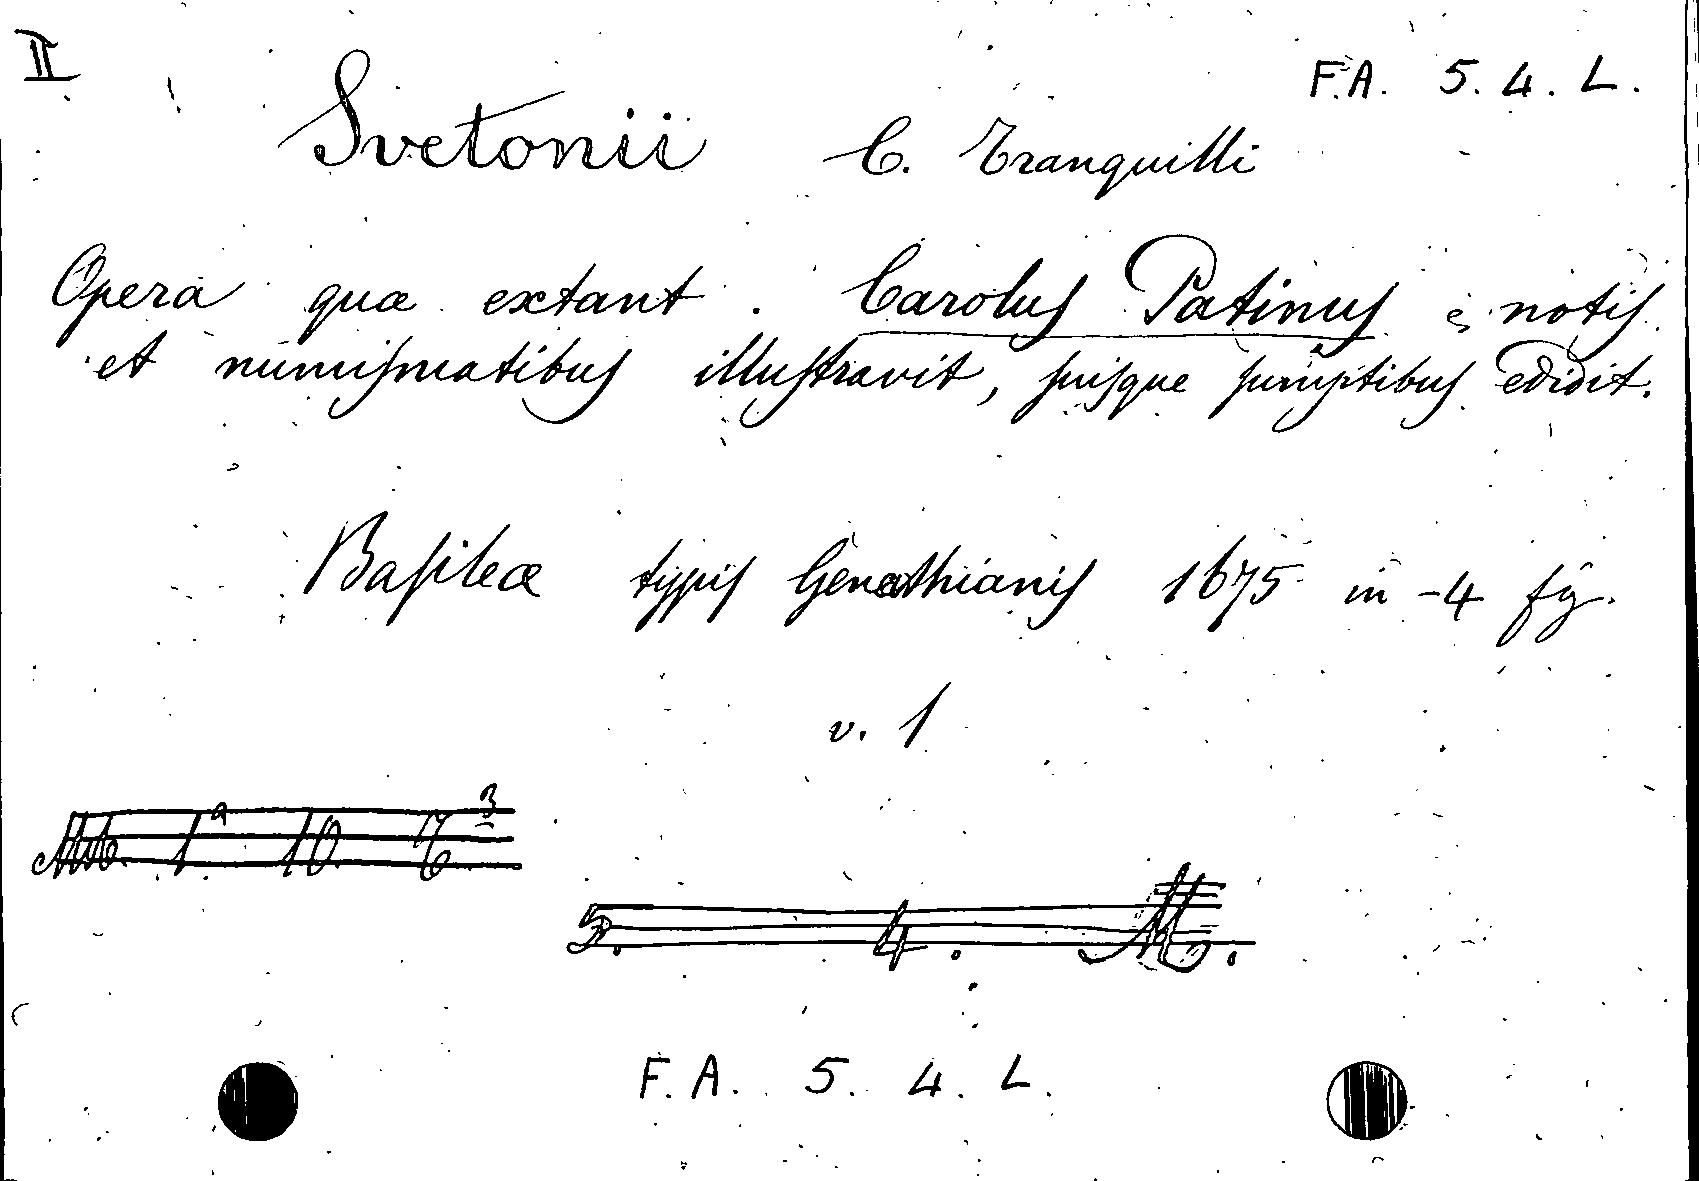 II
F.A. 5. 4. L.
Svetonii C. Tranquilli
Opera quæ extant. Carolus Patinus è notis
et numismatibus illustravit, suisque sumptibus edidit.
Basileæ typis Genathianis 1675 in-4 fig.
v. 1
1ª 10
5. 4. M.
F. A. 5. 4. L.